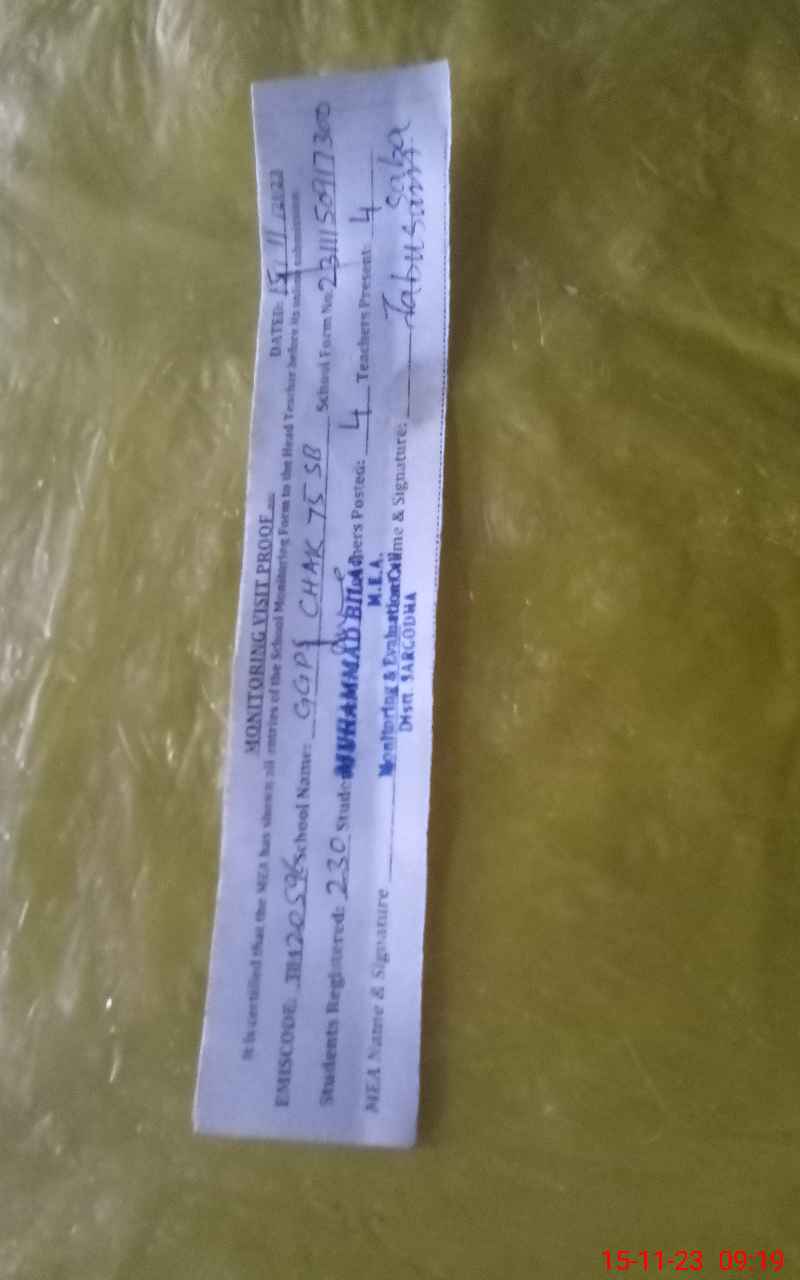 MONITORING VISIT PROOF
DATED: 15/11/2023
It is certified that the MEA has shown all entries of the School Monitoring Form to the Head Teacher before its
EMISCODE: School Name: GGPS CHAK 75 SB School Form No. 2311150917300
Students Registered: 230 Teachers Posted: 4 Teachers Present: 4
MUHAMMAD BILAL
M.E.A.
MEA Name & Signature Name & Signature: Saba
Monitoring & Evaluation Cell
Distt. SARGODHA
15-11-23 09:19